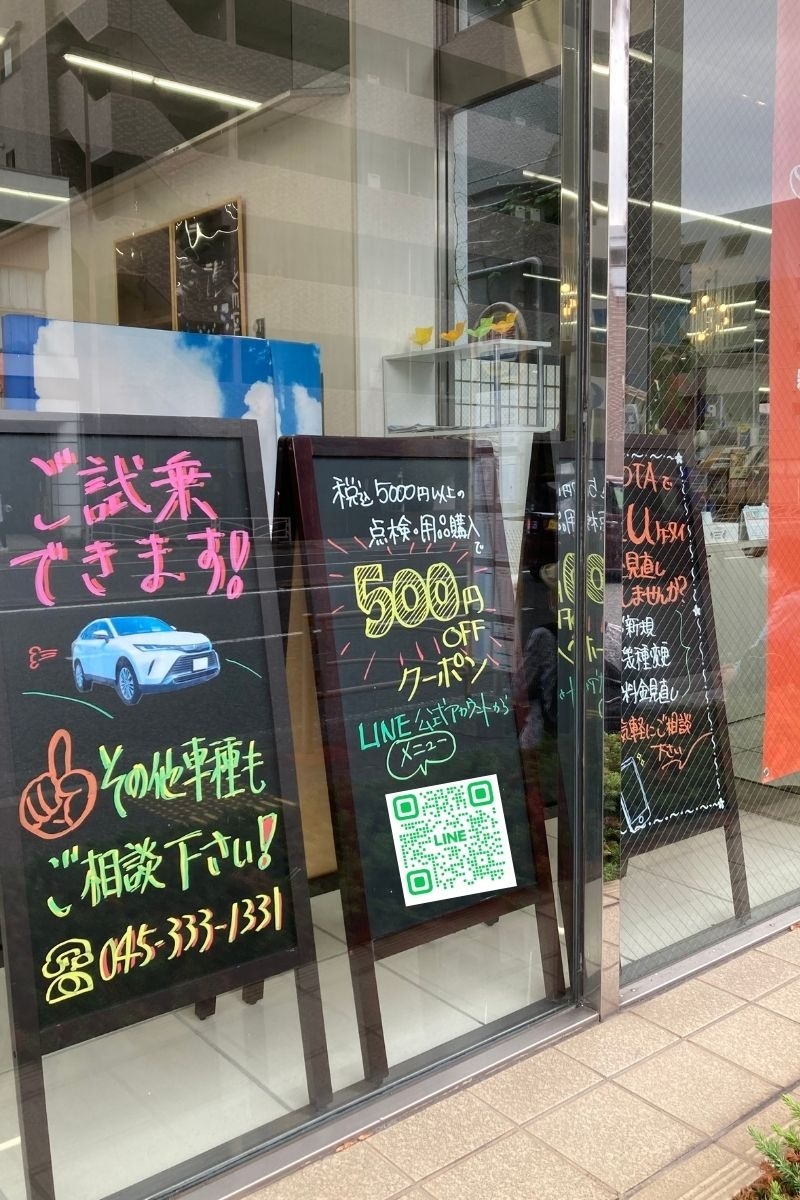 ご試乗
できます!
その他車種も
ご相談下さい!
045-333-1331
税込5000円以上の
点検・用品購入で
500円
OFF
クーポン
LINE公式アカウントから
メニュー
LINE
OTAで
uケータイ
見直し
しませんか?
新規
機種変更
料金見直し
気軽にご相談
下さい